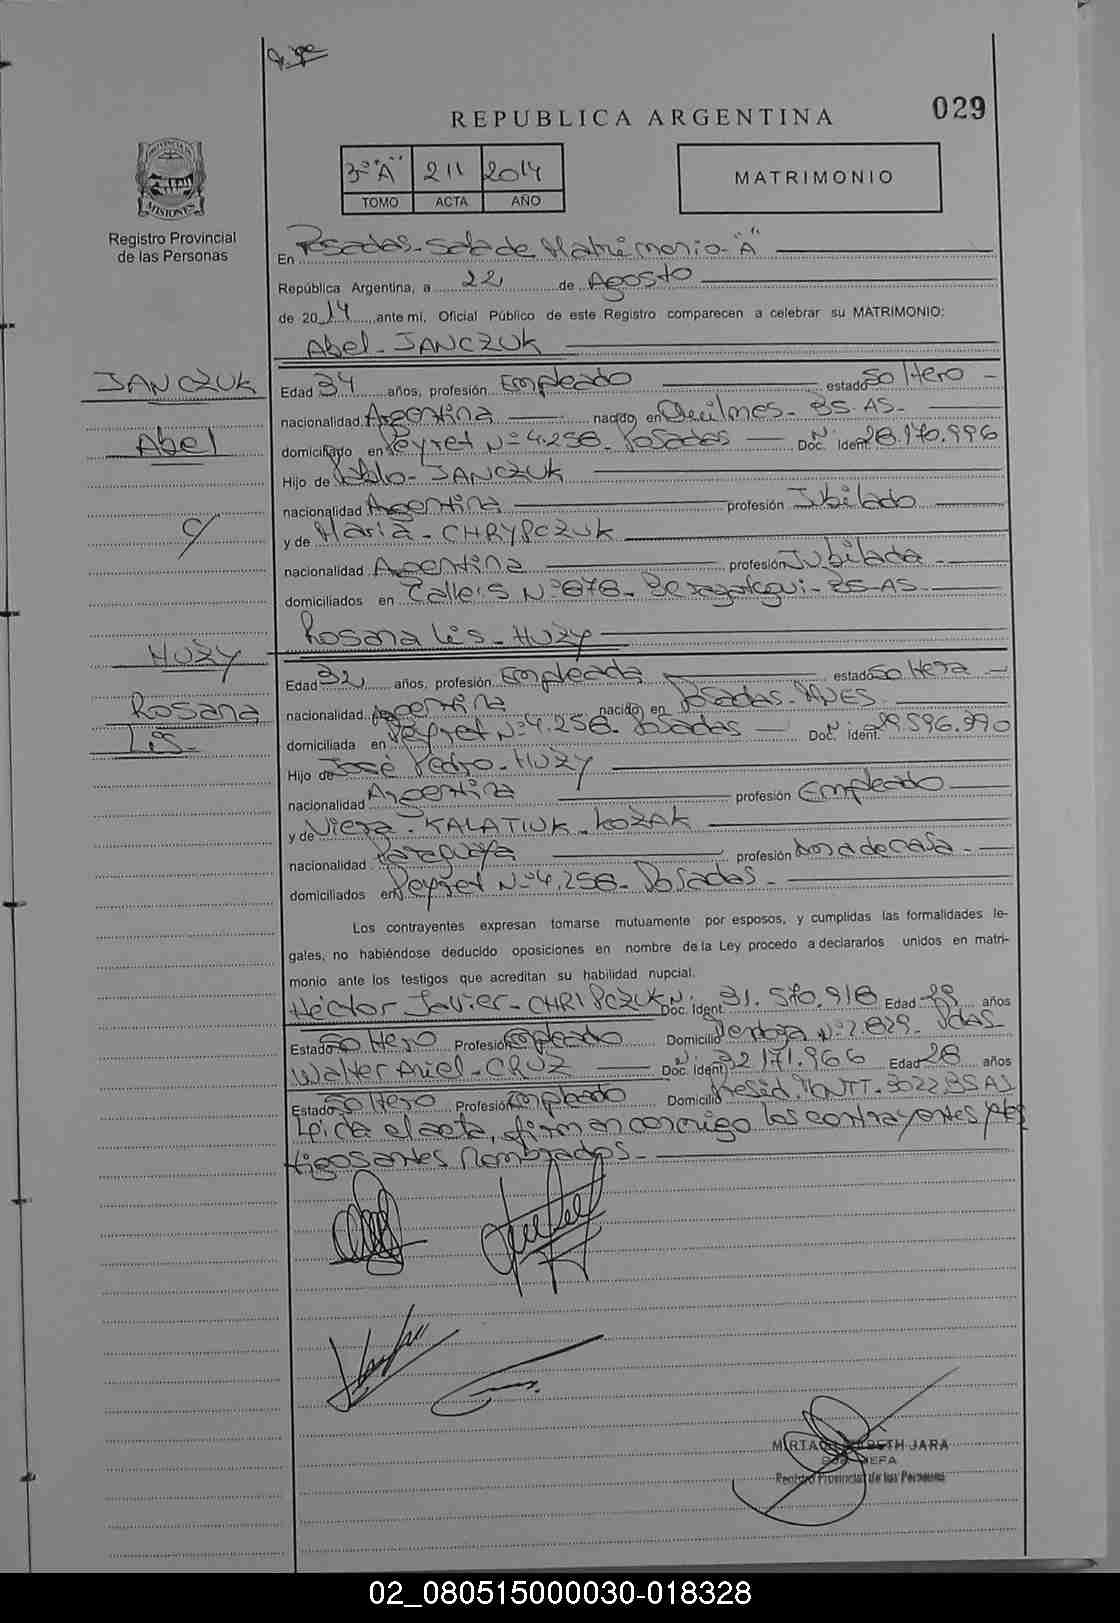 REPUBLICA ARGENTINA
029
3º "A" 211 2014
TOMO ACTA AÑO
MATRIMONIO
PROVINCIA DE
MISIONES
Registro Provincial
de las Personas
En Posadas - Sala de Matrimonio - "A"
República Argentina, a 22 de Agosto
de 2014 ante mí, Oficial Público de este Registro comparecen a celebrar su MATRIMONIO:
Abel - JANCZUK
JANCZUK
Abel
c/
HUZY
Rosana
Lis -
Edad 34 años, profesión Empleado estado Soltero -
nacionalidad Argentina nacido en Quilmes - BS - AS -
domiciliado en Peyret Nº 4.258 - Posadas Doc. Ident. 28.170.996
Hijo de Pablo - JANCZUK
nacionalidad Argentina profesión Jubilado
y de Maria - CHRYPCZUK
nacionalidad Argentina profesión Jubilada
domiciliados en Calle: 5 Nº 878 - Berazategui - BS - AS -
Rosana Lis - HUZY
Edad 32 años, profesión Empleada estado Soltera -
nacionalidad Argentina nacido en Posadas -
domiciliada en Peyret Nº 4.258 - Posadas Doc. Ident. 29.596.390
Hijo de José Pedro - HUZY
nacionalidad Argentina profesión Empleado
y de Viera - KALATIUK - KOZAK
nacionalidad Paraguaya profesión Ama de casa -
domiciliados en Peyret Nº 4.258 - Posadas -
Los contrayentes expresan tomarse mutuamente por esposos, y cumplidas las formalidades le-
gales, no habiéndose deducido oposiciones en nombre de la Ley procedo a declararlos unidos en matri-
monio ante los testigos que acreditan su habilidad nupcial.
Héctor Javier - CHRIPCZUK Doc. Ident. 31.570.918 Edad 29 años
Estado Soltero Profesión Empleado Domicilio Pedroza Nº 2.829 - Pdas -
Walter Ariel - CRUZ Doc. Ident. 32171.966 Edad 28 años
Estado Soltero Profesión Empleado Domicilio Presid. 3022 BS AS
Leida el acta, firman conmigo los contrayentes y tes
tigos antes nombrados -
MIRTA JARA
Registro Provincial de las Personas
02_080515000030-018328